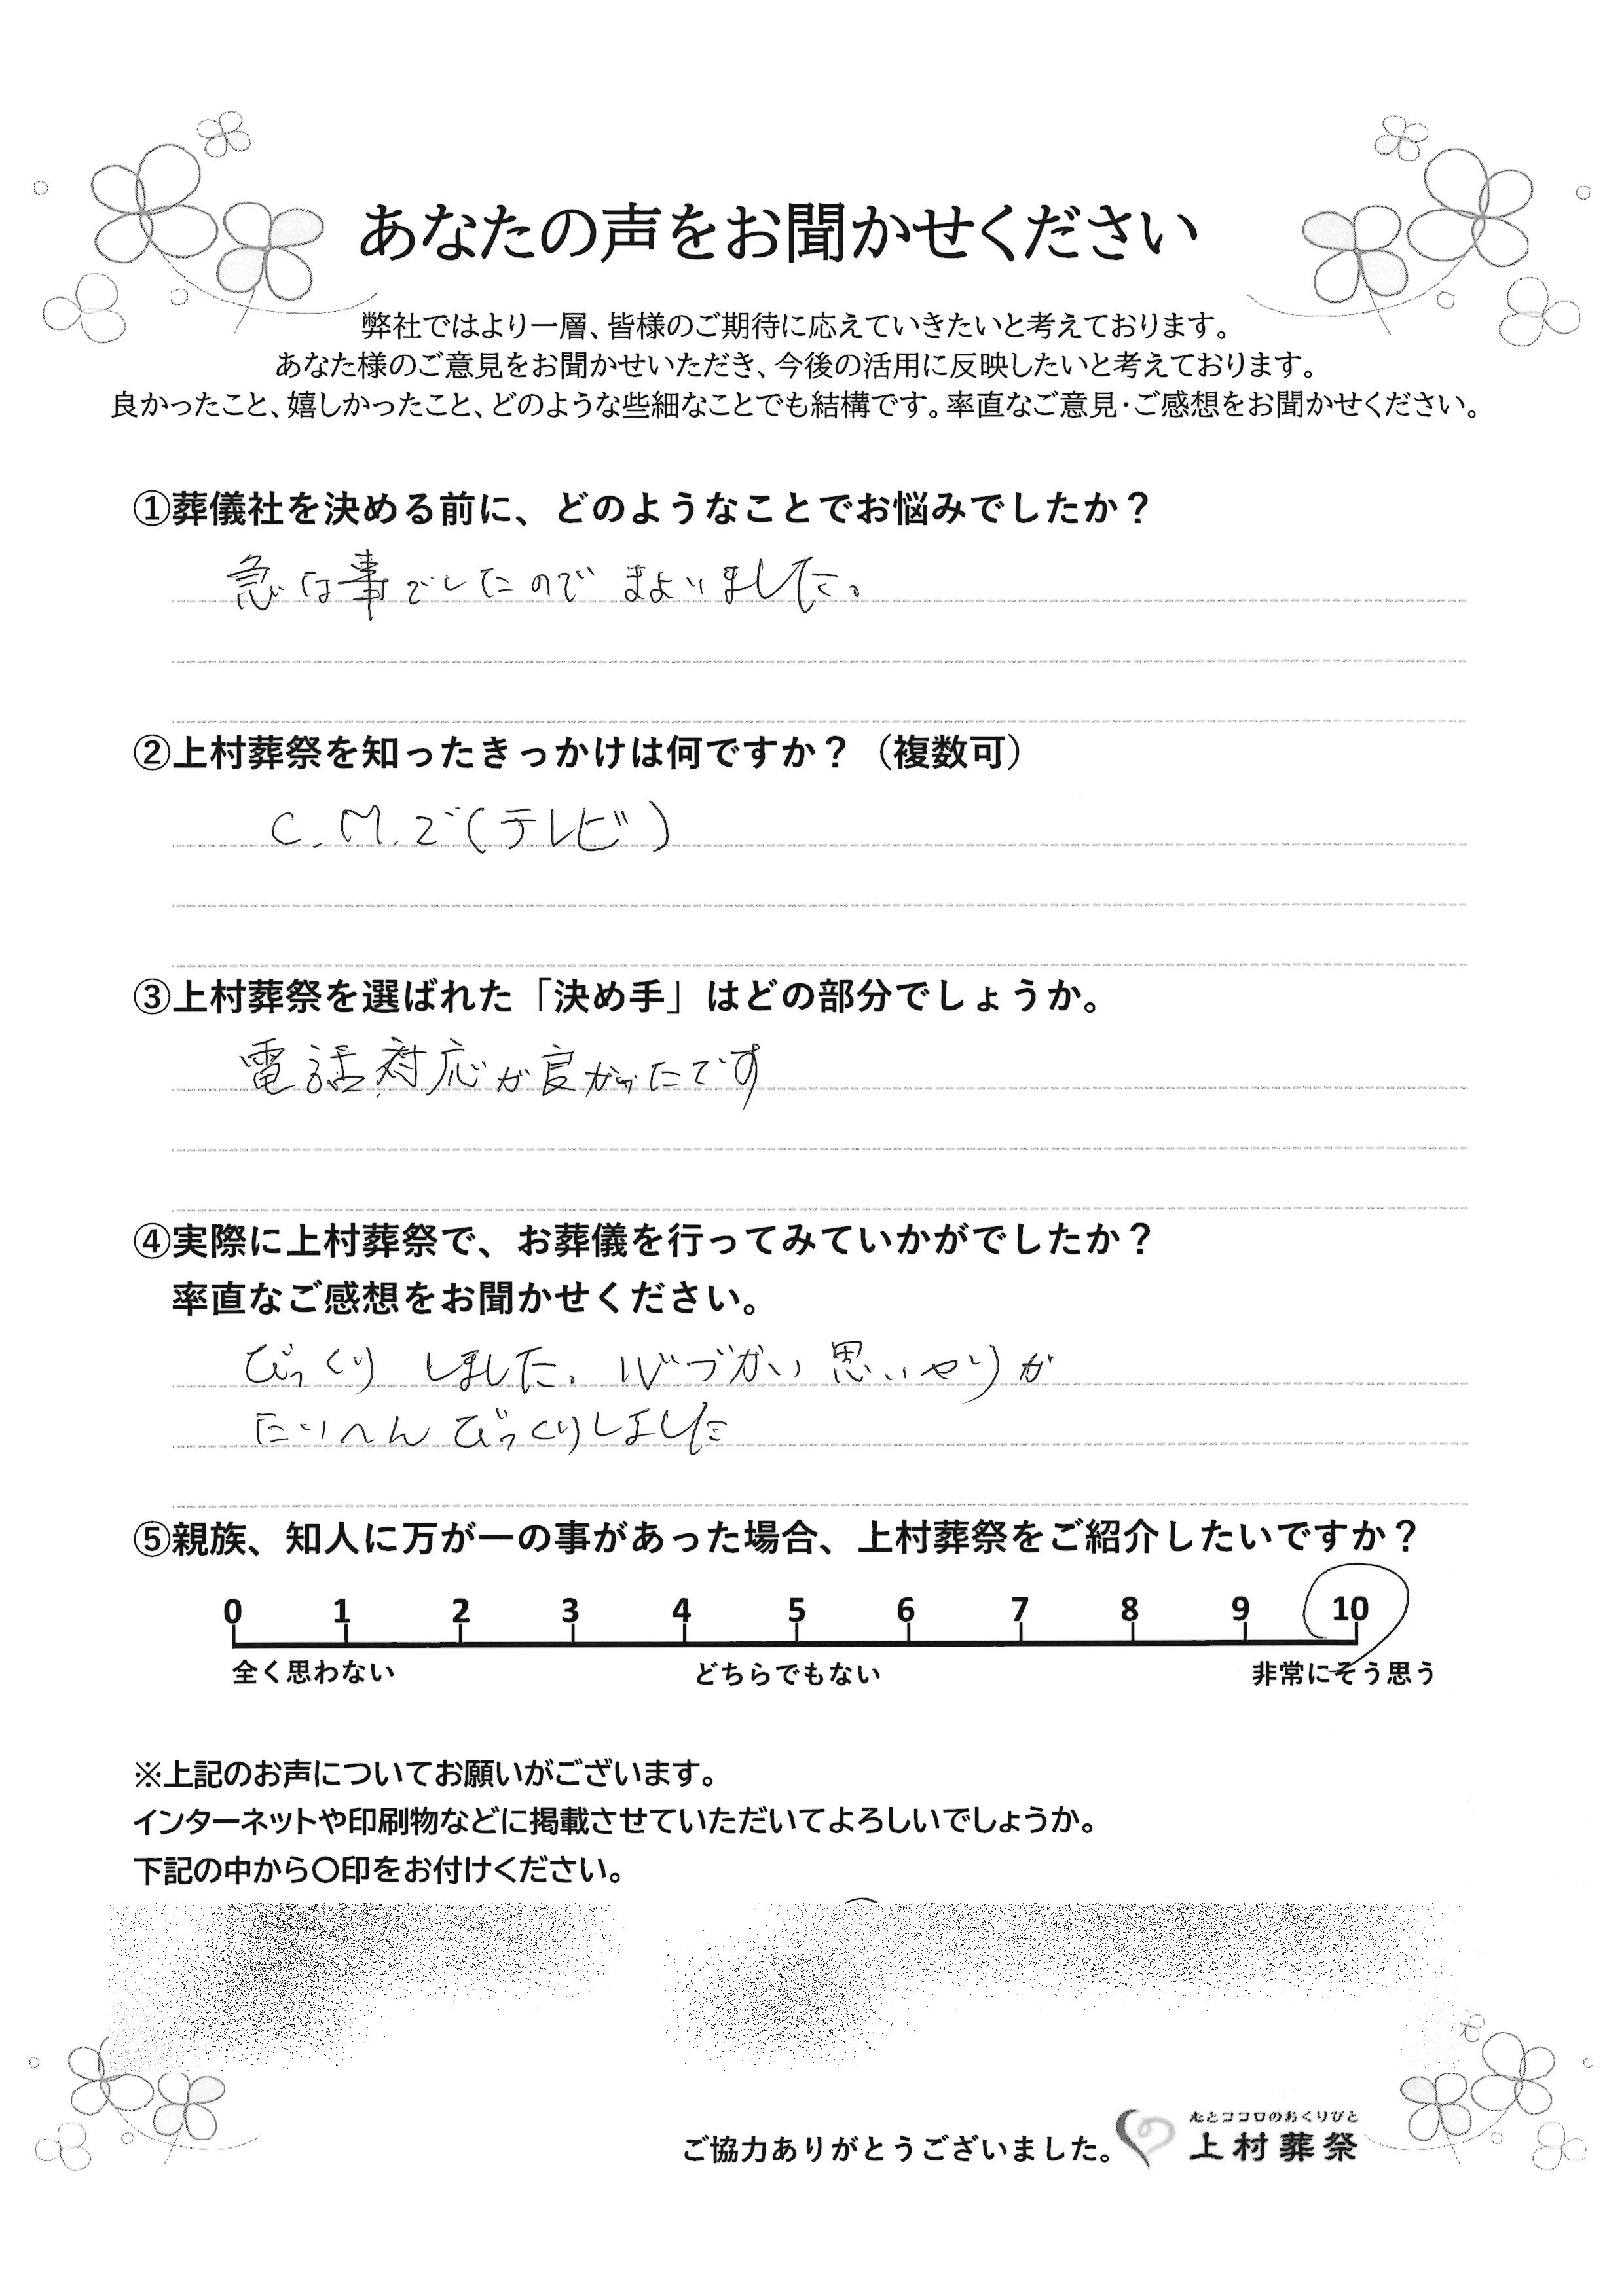 あなたの声をお聞かせください
弊社ではより一層、皆様のご期待に応えていきたいと考えております。
あなた様のご意見をお聞かせいただき、今後の活用に反映したいと考えております。
良かったこと、嬉しかったこと、どのような些細なことでも結構です。率直なご意見・ご感想をお聞かせください。
①葬儀社を決める前に、どのようなことでお悩みでしたか？
急な事でしたので まよいました。
②上村葬祭を知ったきっかけは何ですか？（複数可）
C.M.で(テレビ)
③上村葬祭を選ばれた「決め手」はどの部分でしょうか。
電話対応が良かったです
④実際に上村葬祭で、お葬儀を行ってみていかがでしたか？
率直なご感想をお聞かせください。
びっくり しました。心づかい 思いやりが
たいへん びっくりしました
⑤親族、知人に万が一の事があった場合、上村葬祭をご紹介したいですか？
0 1 2 3 4 5 6 7 8 9 10
全く思わない どちらでもない 非常にそう思う
※上記のお声についてお願いがございます。
インターネットや印刷物などに掲載させていただいてよろしいでしょうか。
下記の中から〇印をお付けください。
ご協力ありがとうございました。
花とココロのおくりびと
上村葬祭